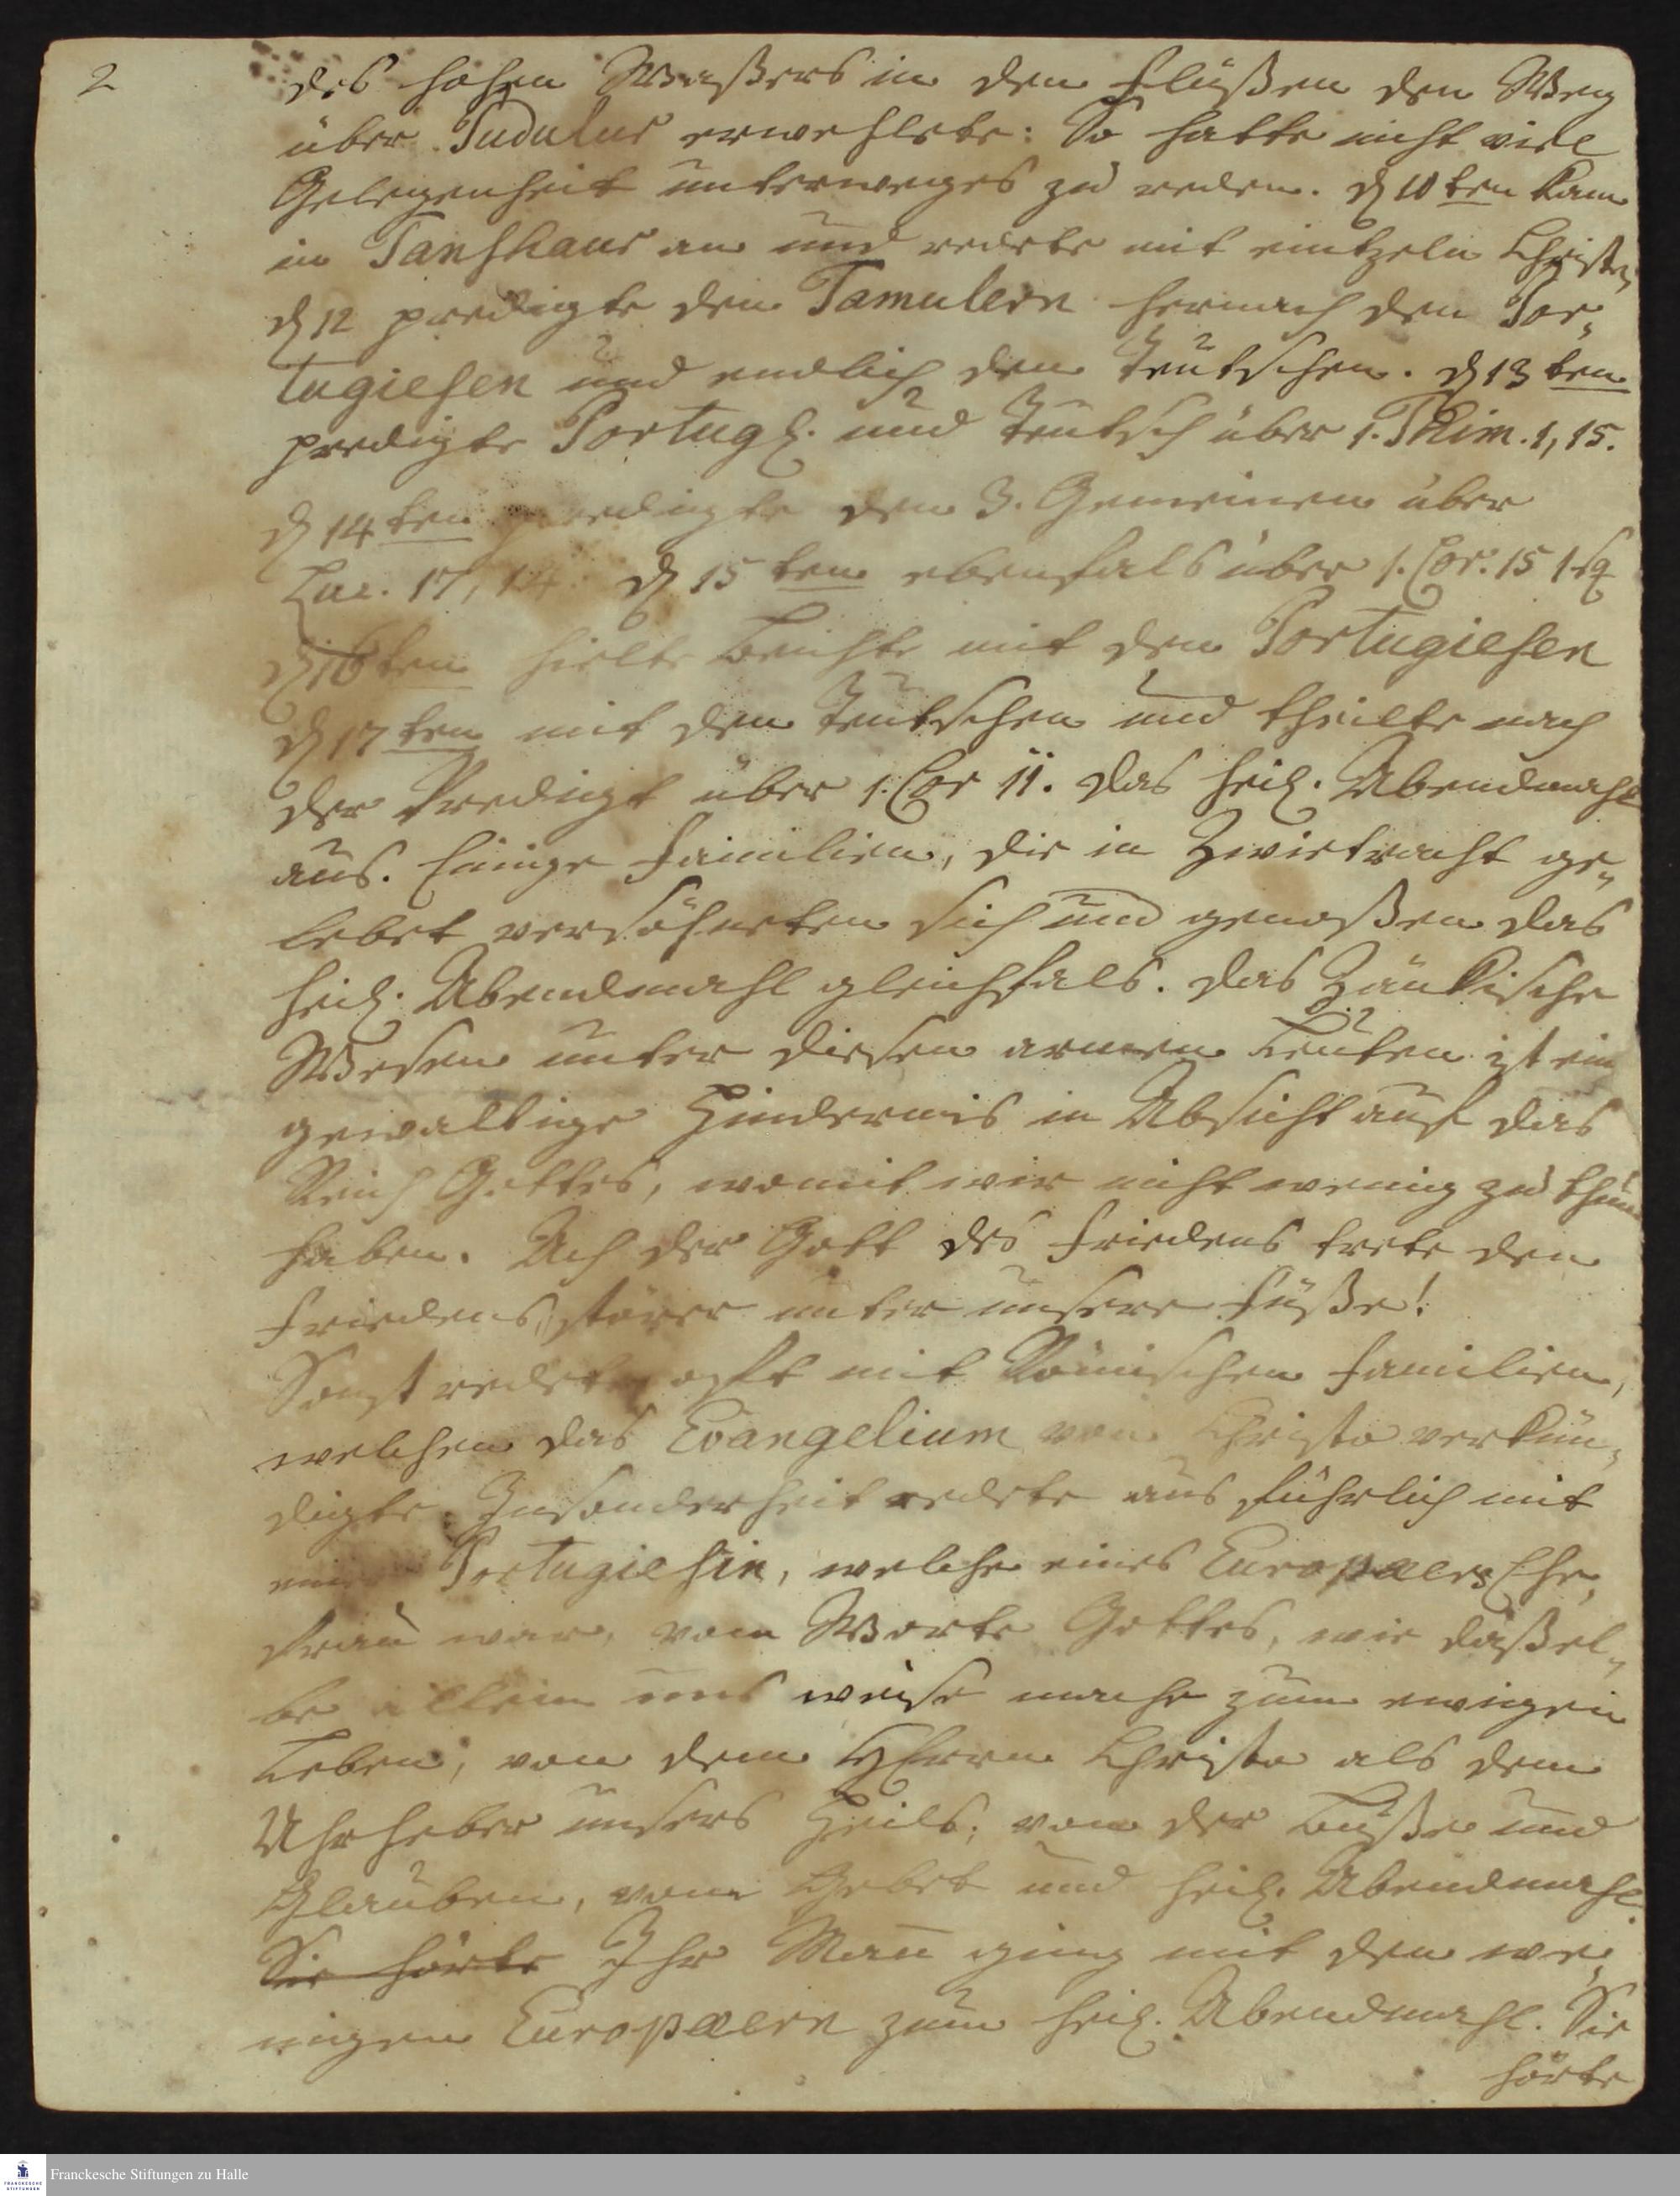 2
des hohen Waßers in den Flüßen den Weg
über Tudulur erwehlete: So hatte nicht viel
Gelegenheit unterweges zu reden. d 10ten kam
in Tanshaur an und redete mit eintzeln Christen,
d 12 predigte den Tamulern hernach den Por„
tugiesen und endlich den Teutschen. d 13ten
predigte Portug. und Teutsch über 1. Thim. 1, 15.
d 14ten predigte den 3. Gemeinen über
Luc. 17, 14. d 15ten ebenfals über 1. Cor. 15 1 sq
d 16ten hielte Beichte mit den Portugiesen
d 17ten mit den Teutschen und theilte nach
der Predigt über 1. Cor 11. das heil. Abendmahl
aus. Einige Familien, die in Zwietracht ge„
lebet versöhneten sich und genoßen das
heil. Abendmahl gleichfals. das Zänkische
Wesen unter diesen armen Leuten ist ein
gewaltige Hindernis in Absicht auf das
Reich Gottes, womit wir nicht wenig zu thun
haben. Ach der Gott des Friedens trete den
Friedens störer unter unsere Füße!
Sonst redete offt mit Römischen Familien,
welchen das Evangelium von Christo verkün„
digte. Insonderheit redete ausführlich mit
einer Portugiesin, welche eines Europaeers Ehe„
frau war, vom Worte Gottes, wie daßel„
be allein uns weise mache zum ewigen
Leben; von dem HErrn Christo als dem
Uhrheber unsers Heils; von der Buße und
Glauben, vom Gebet und heil. Abendmahl.
Sie hörte Ihr Mann ging mit den we„
nigen Europaeern zum heil. Abendmahl. Sie
hörte
Franckesche Stiftungen zu Halle
FRANCKESCHE
STIFTUNGEN